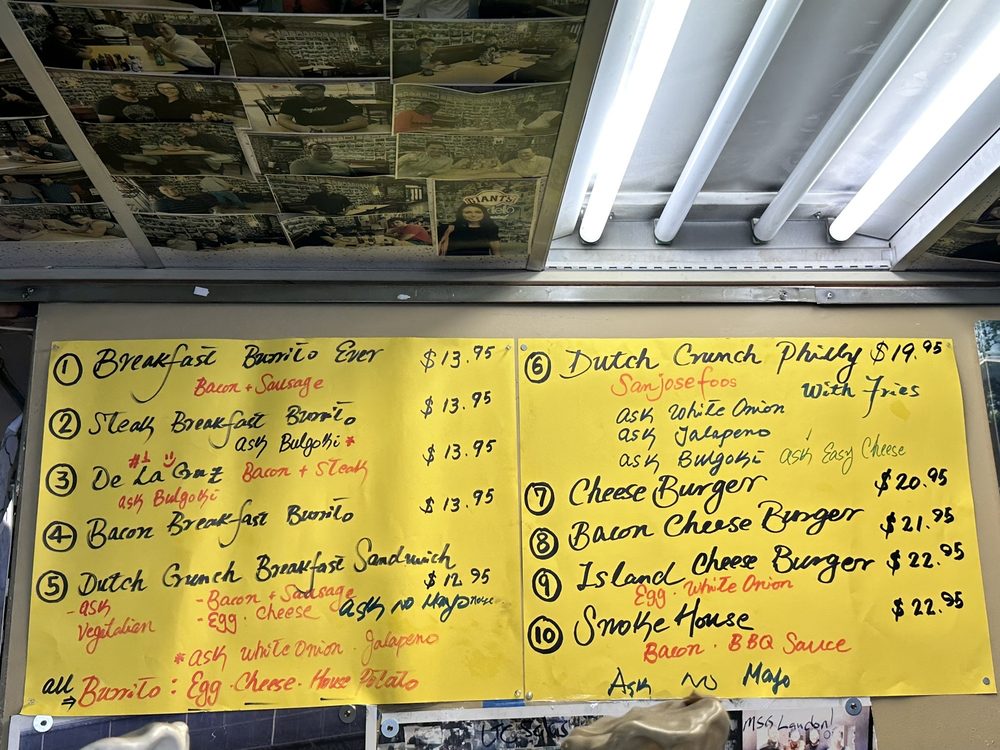 GIANTS
① Breakfast Burrito Ever $13.95
Bacon + Sausage
② Steak Breakfast Burrito $13.95
ASK Bulgoki *
#1
③ De La Cruz Bacon + Steak $13.95
ask Bulgoki
④ Bacon Breakfast Burrito $13.95
⑤ Dutch Crunch Breakfast Sandwich
$12.95
- ask - Bacon + Sausage
Vegitalien - Egg . Cheese ASK NO Mayo
* ASK White Onion . Jalapeno
all → Burrito : Egg . Cheese . House Potato
⑥ Dutch Crunch Philly $19.95
Sanjosefoos With Fries
ASK White Onion
ASK Jalapeno
ASK Bulgoki ASK Easy Cheese
⑦ Cheese Burger $20.95
⑧ Bacon Cheese Burger $21.95
⑨ Island Cheese Burger $22.95
Egg . White Onion
⑩ Smoke House $22.95
Bacon . BBQ Sauce
Ask No Mayo
MSG London!